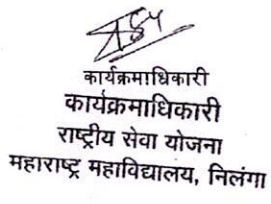 कार्यक्रमाधिकारी
कार्यक्रमाधिकारी
राष्ट्रीय सेवा योजना
महाराष्ट्र महाविद्यालय, निलंगा